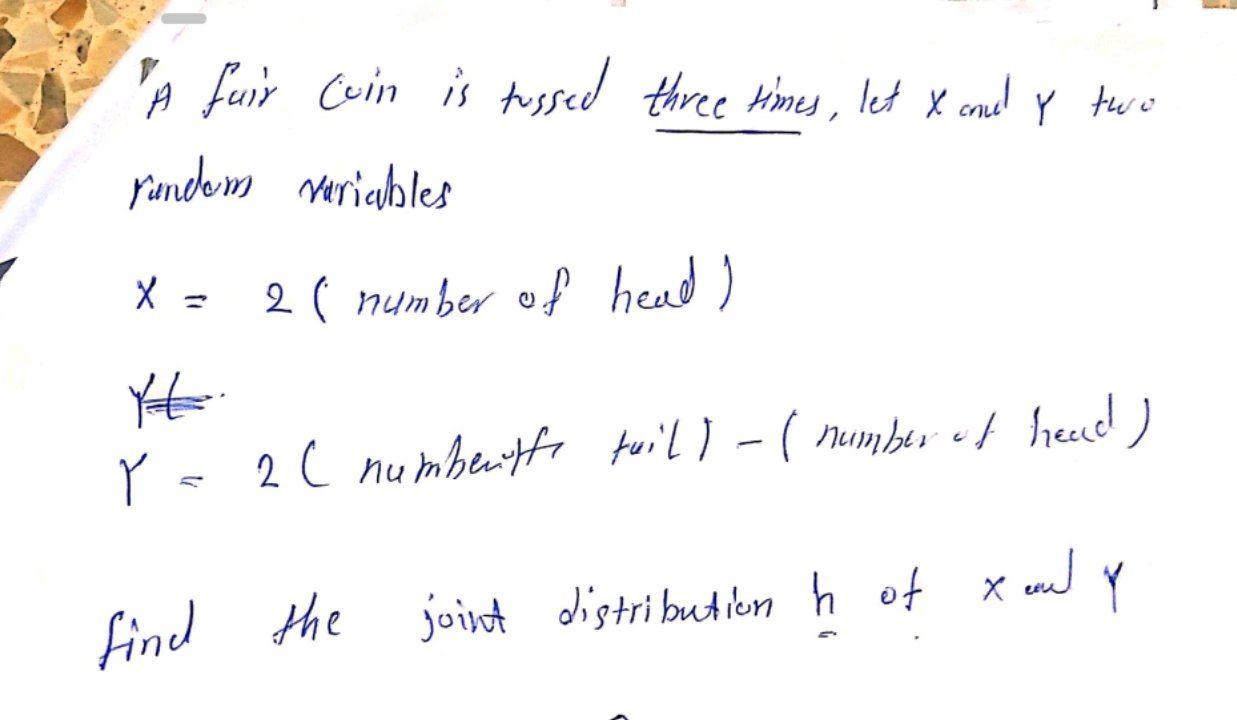 A fair Coin is tossed three times, let X and Y two
random variables
X = 2 ( number of head )
Y = 2 ( number of tail ) - ( number of head )
find the joint distribution h of X and Y